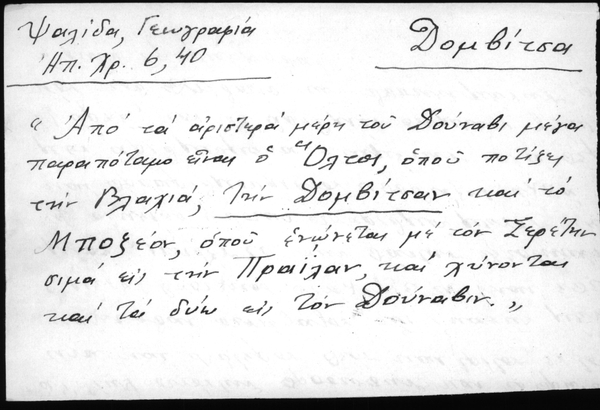 Ψαλίδα, Γεωγραφία
Ἠπ. Χρ. 6, 40
Δομβίτσα
"Ἀπό τά ἀριστερά μέρη τοῦ Δούναβι μέγα
παραπόταμο εἶναι ὁ Ὄλτος, ὁποῦ ποτίζει
τήν Βλαχιά, τήν Δομβίτσαν καί τό
Μποζέον, ὁποῦ ἑνώνεται με τόν Σερέτην
σιμά εἰς τήν Πραΐλαν, καί χύνονται
καί τά δύω εἰς τόν Δούναβιν."